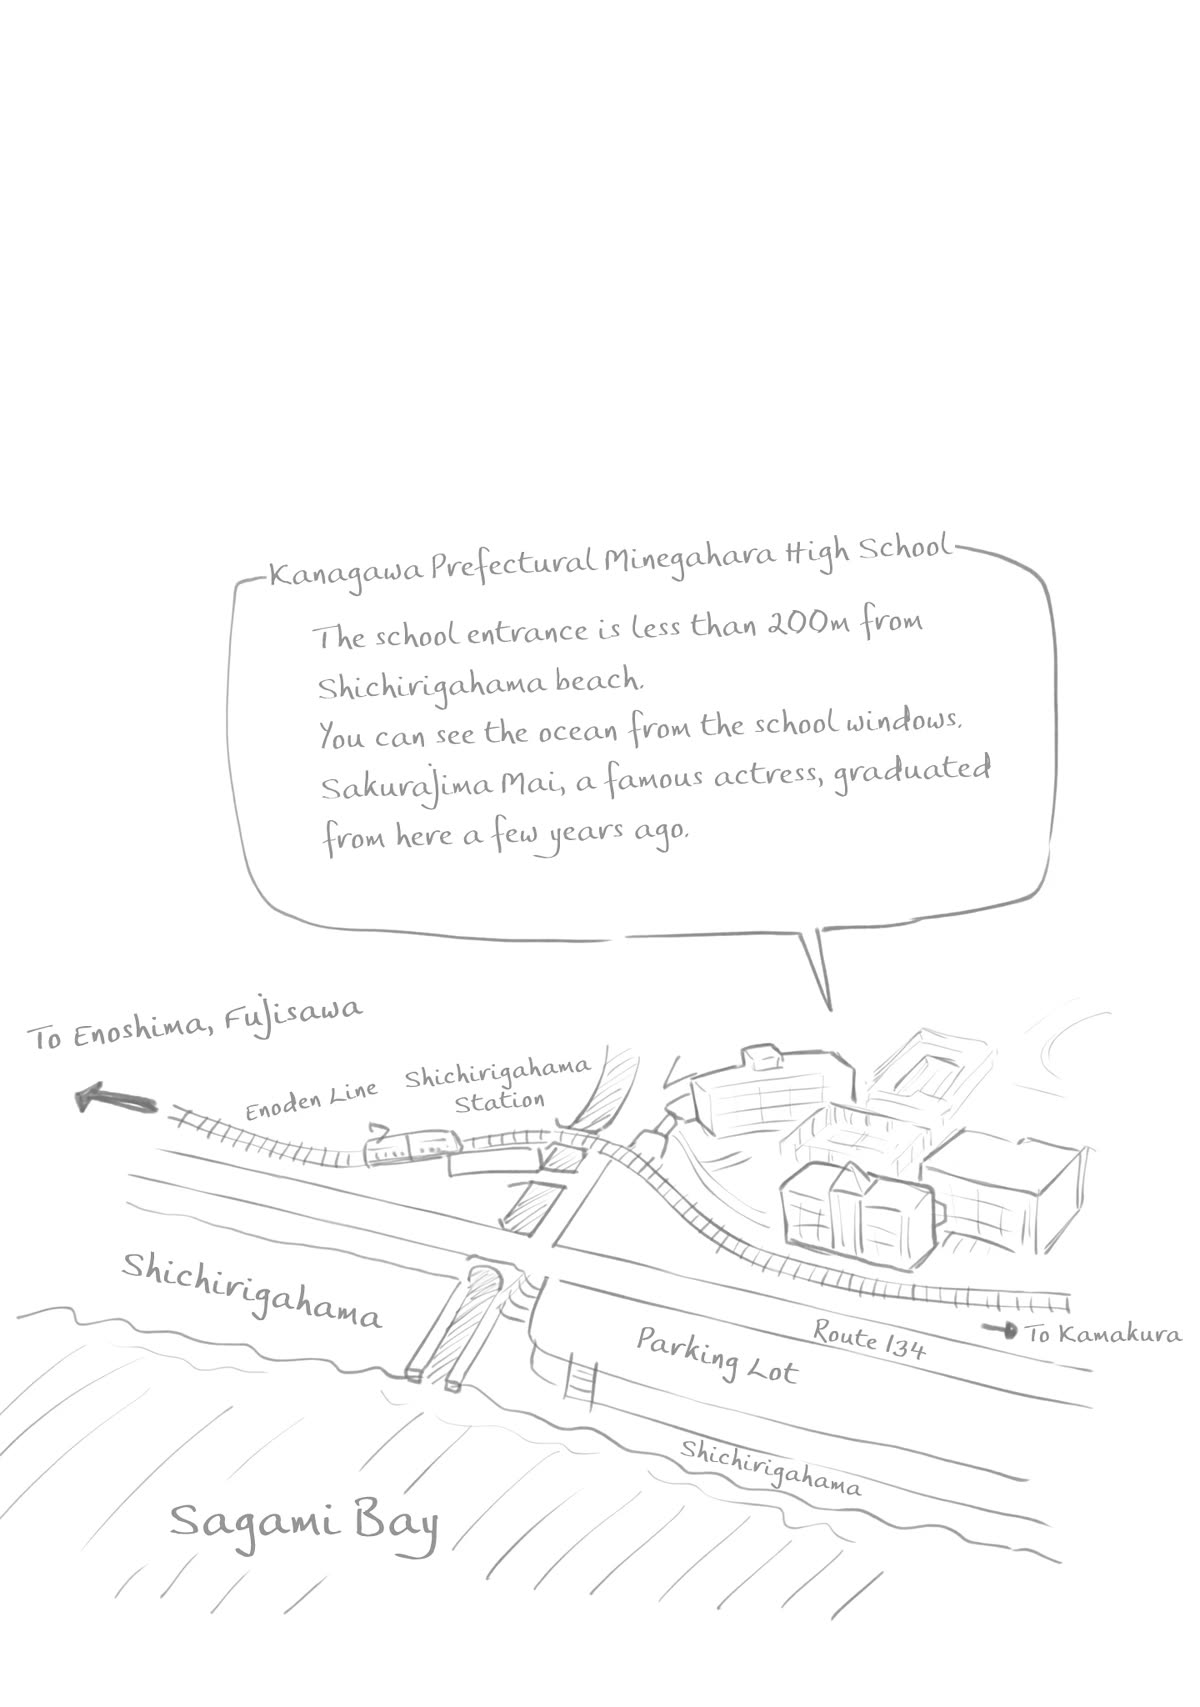 Kanagawa Prefectural Minegahara High School
The school entrance is less than 200m from
Shichirigahama beach.
You can see the ocean from the school windows.
Sakurajima Mai, a famous actress, graduated
from here a few years ago.
To Enoshima, Fujisawa
Enoden Line
Shichirigahama
Station
Shichirigahama
To Kamakura
Route 134
Parking Lot
Shichirigahama
Sagami Bay